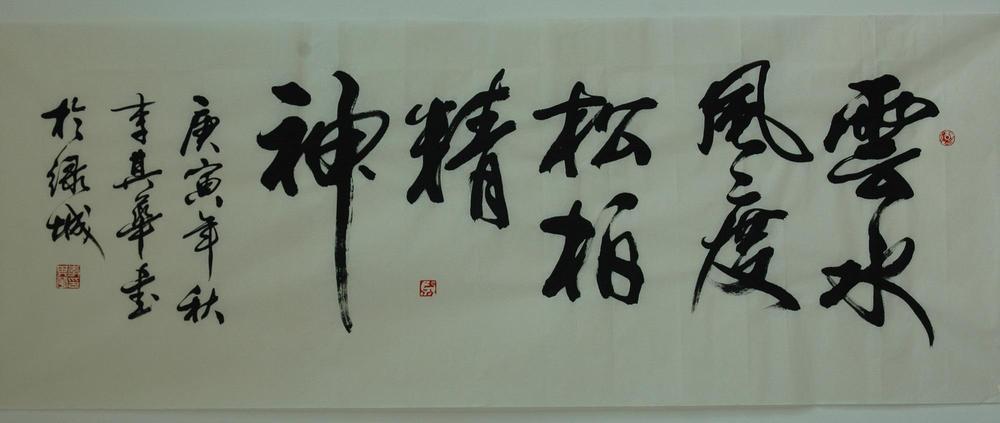 雲水
風度
松柏
精
神
庚寅年秋
李其華书
於绿城